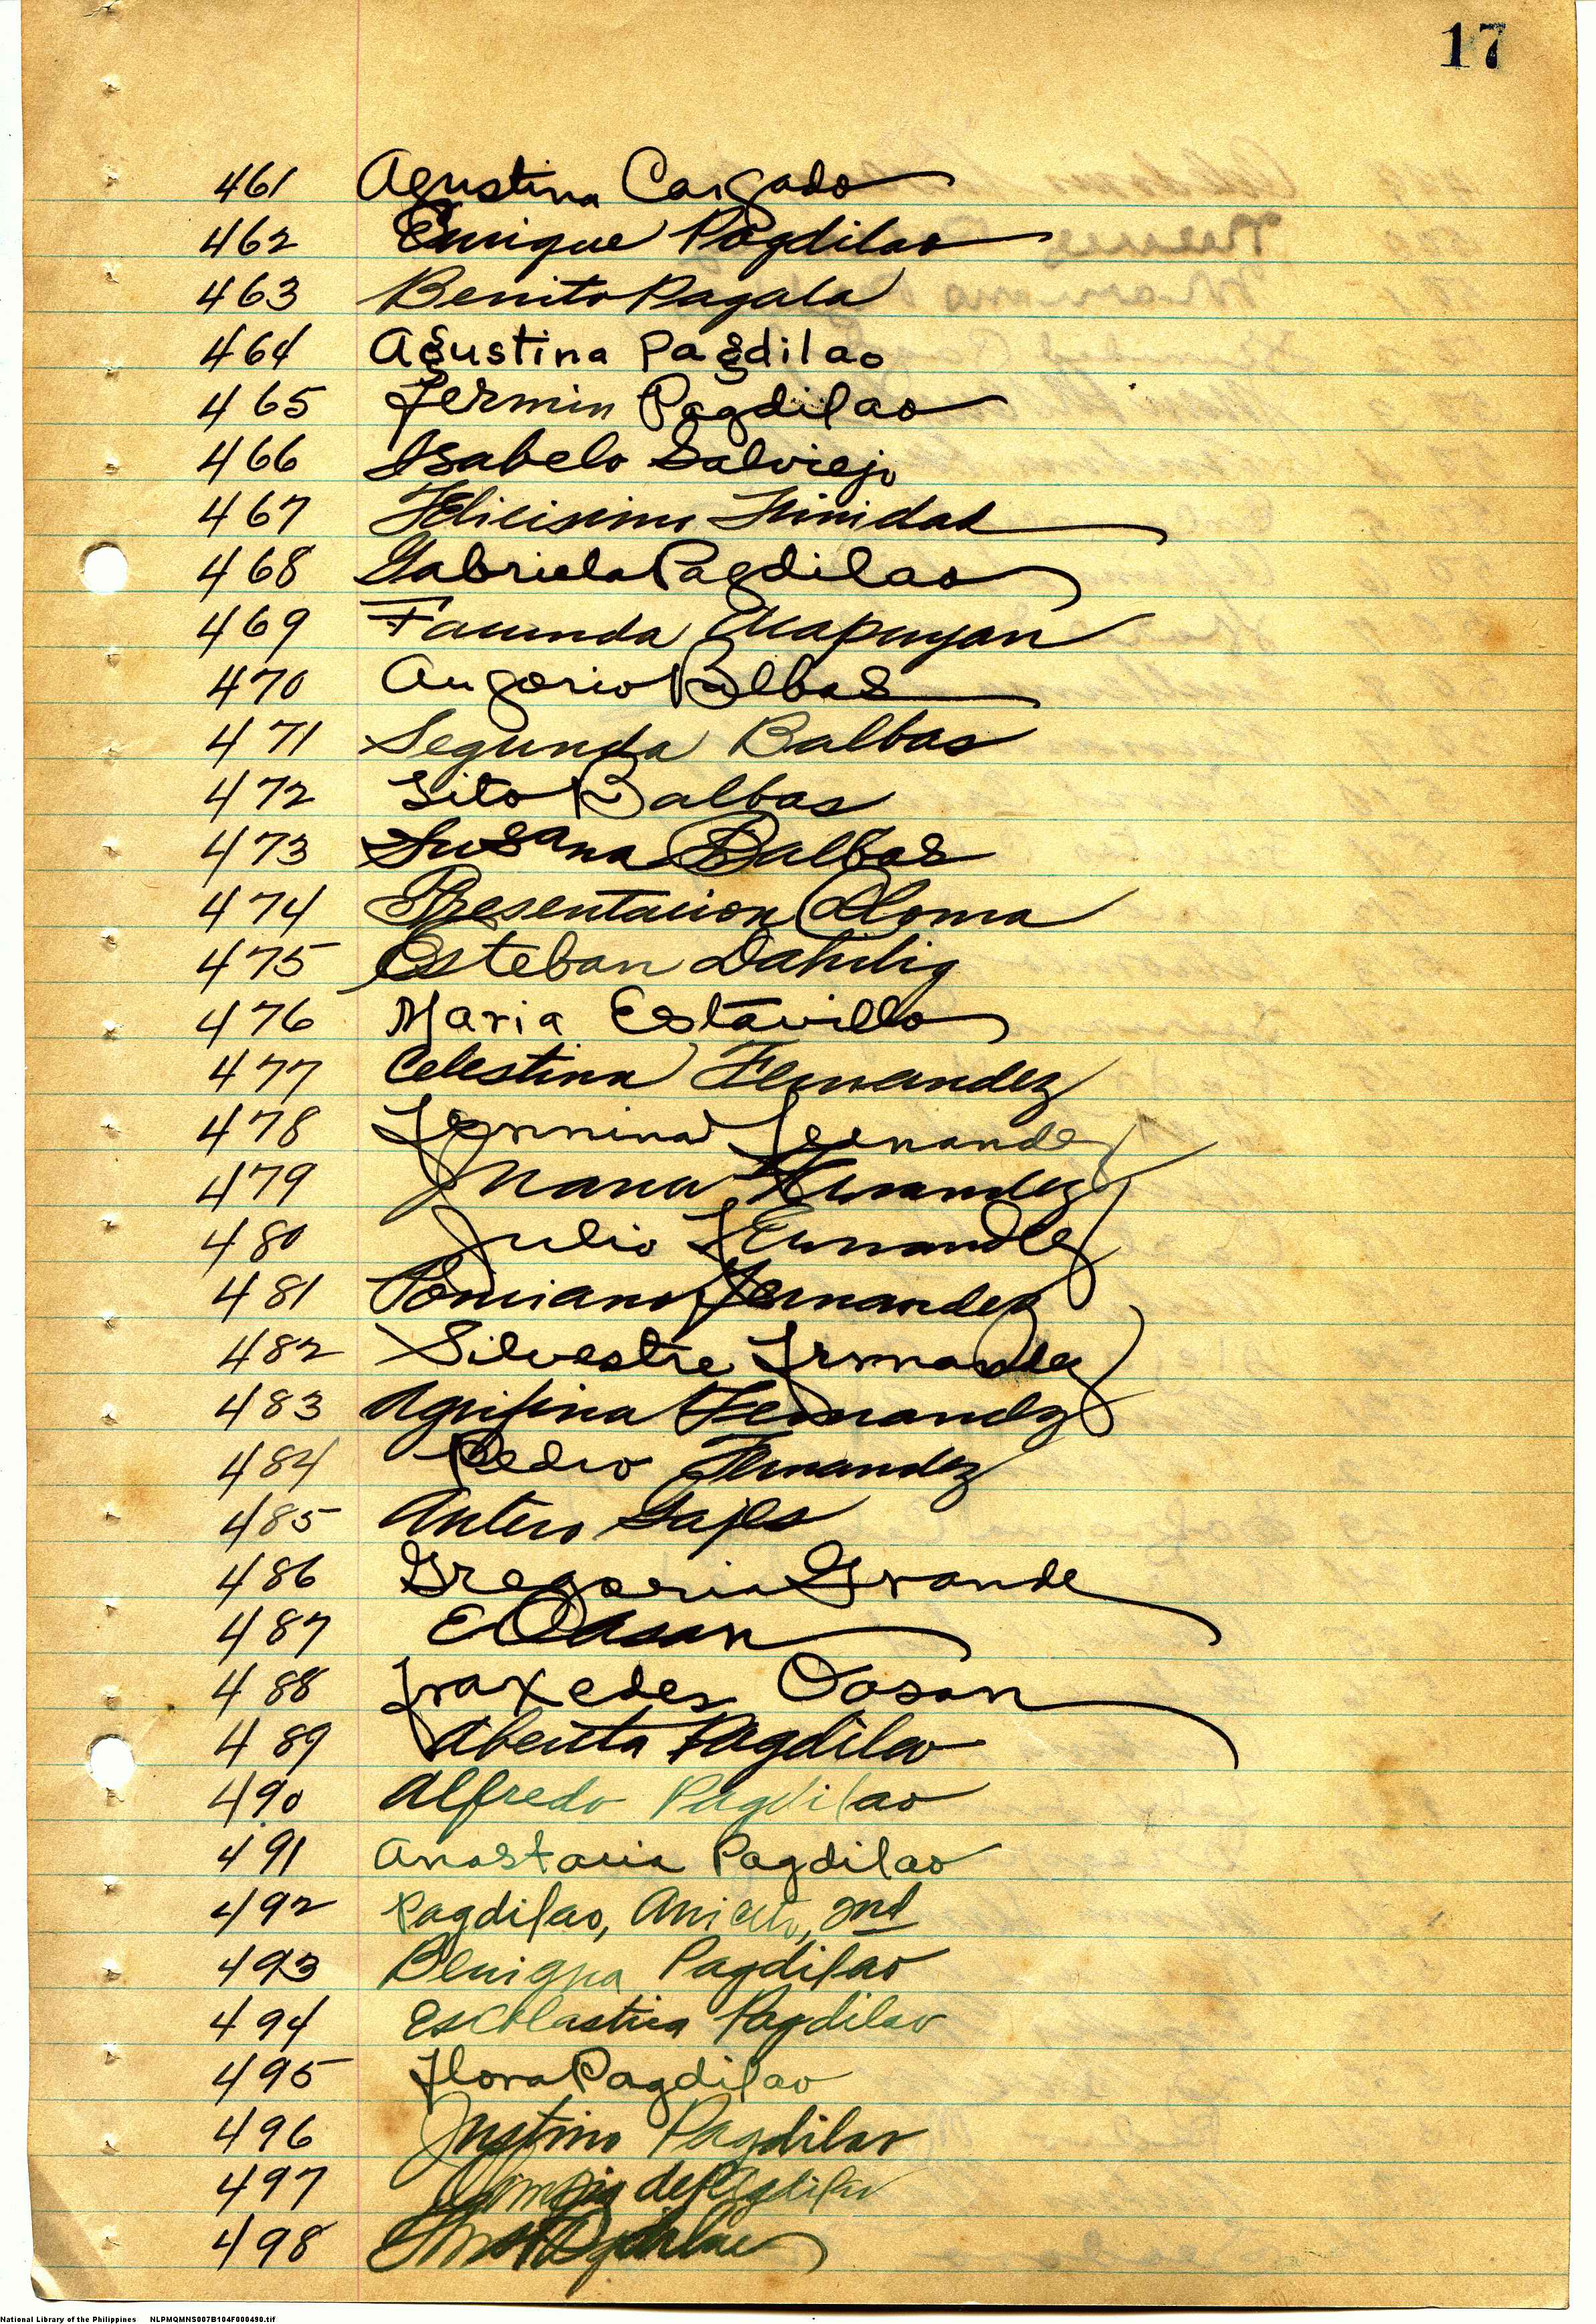 17
461 Agustina Cargado
462 Enrique Pagdilao
463 Benito Pagala
464 Agustina Pagdilao
465 Fermin Pagdilao
466 Isabelo Salviejo
467 Felicisimo Trinidad
468 Gabriela Pagdilao
469 Facunda Acapuyan
470 Augorio Balbas
471 Segunda Balbas
472 Tito Balbas
473 Susana Balbas
474 Presentacion
475 Esteban Dahilig
476 Maria Estavillo
477 Celestina Fernandez
478 Fernandez
479 Maria Fernandez
480 Julio Fernandez
481 Ponciano Fernandez
482 Silvestre Fernandez
483 Agripina Fernandez
484 Pedro Fernandez
485 Antero
486 Gregoria Grande
487 E Oasan
488 Praxedes Oasan
489 Pagdilao
490 Alfredo Pagdilao
491 Anastacia Pagdilao
492 Pagdilao, Aniceto, 2nd
493 Benigna Pagdilao
494 Escolastica Pagdilao
495 Flora Pagdilao
496 Justino Pagdilao
497 de Pagdilao
498
National Library of the Philippines NLPMQMNS007B104F000490.tif